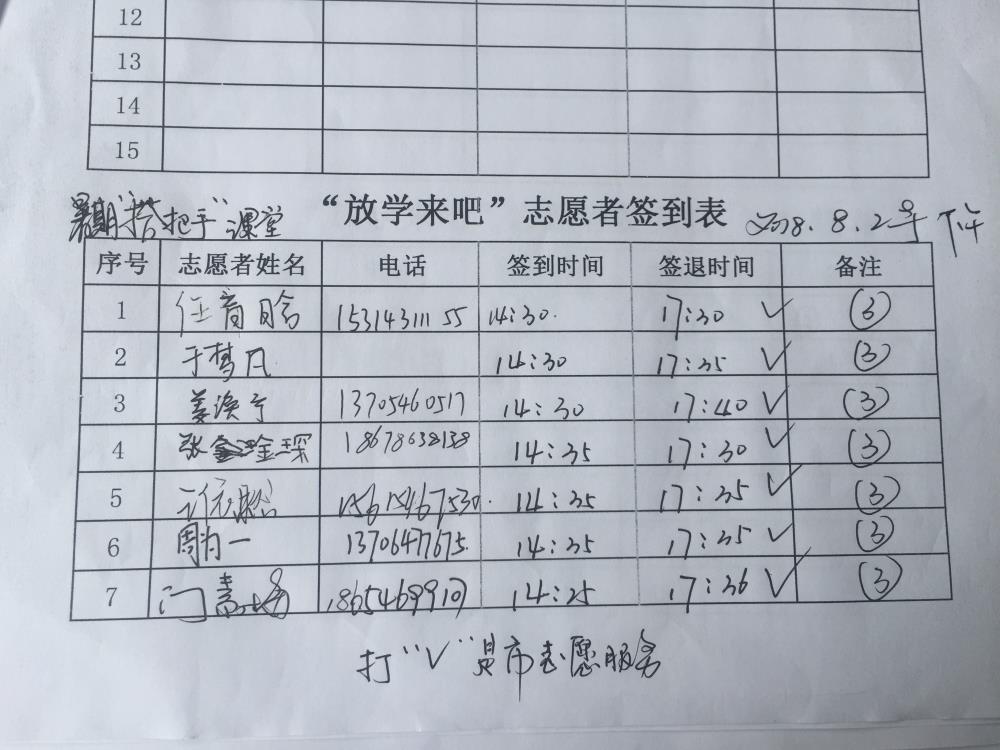 12
13
14
15
暑期“搭把手”课堂 “放学来吧”志愿者签到表 2018.8.2号 下午
序号 志愿者姓名 电话 签到时间 签退时间 备注
1 任育晗 15314311155 14:30. 17:30 ✓ ③
2 于梦凡 14:30 17:35 ✓ ③
3 姜涣宁 13705460517 14:30 17:40 ✓ ③
4 张淦琛 18678638138 14:35 17:30 ✓ ③
5 许 15615467530. 14:35 17:35 ✓ ③
6 周为一 13706477675. 14:35 17:35 ✓ ③
7 门 14:25 17:36 ✓ ③
打“√”是市志愿服务